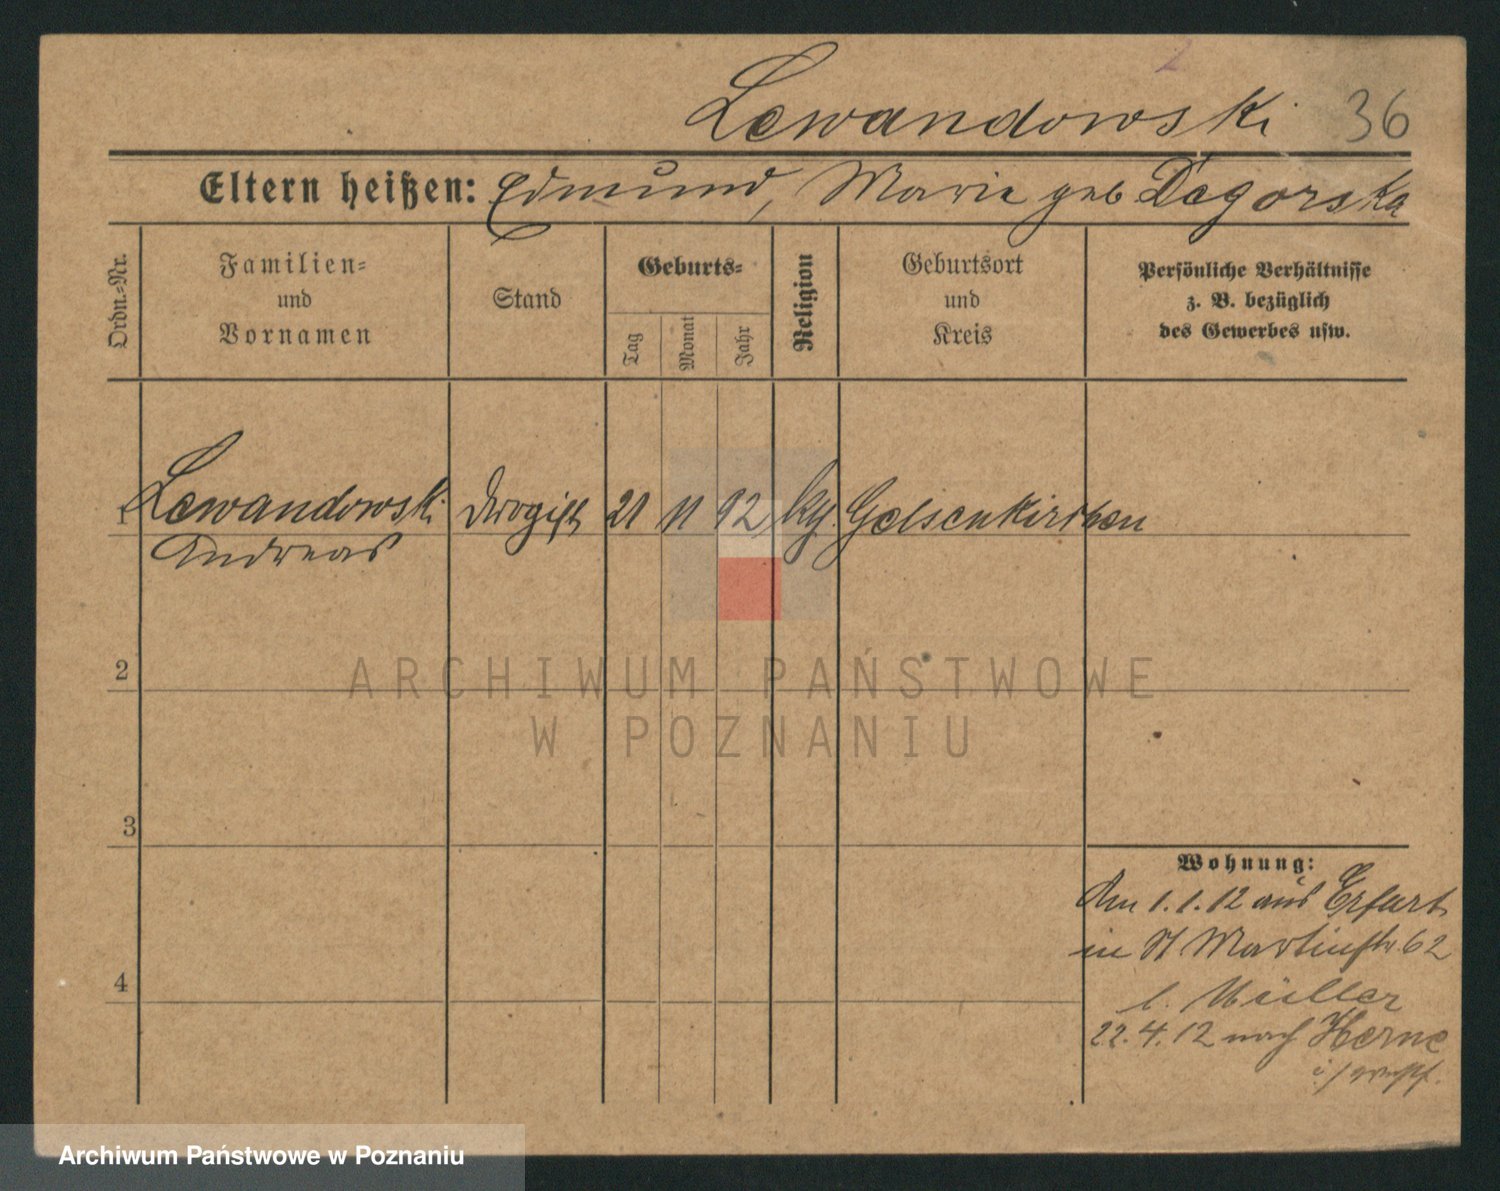 Lewandowski 36
Eltern heißen: Edmund, Marie geb Degorska
Ordn.-Nr.
Familien-
und
Vornamen
Stand
Geburts-
Tag
Monat
Jahr
Religion
Geburtsort
und
Kreis
Persönliche Verhältnisse
z. B. bezüglich
des Gewerbes usw.
1 Lewandowski Drogist 21 11 92 kg. Gelsenkirchen
Andreas
2
3
4
Wohnung:
Am 1.1.12 aus Erfurt
in St Martinstr 62
b. Müller
22.4.12 nach Herne
i/
ARCHIWUM PAŃSTWOWE
W POZNANIU
Archiwum Państwowe w Poznaniu